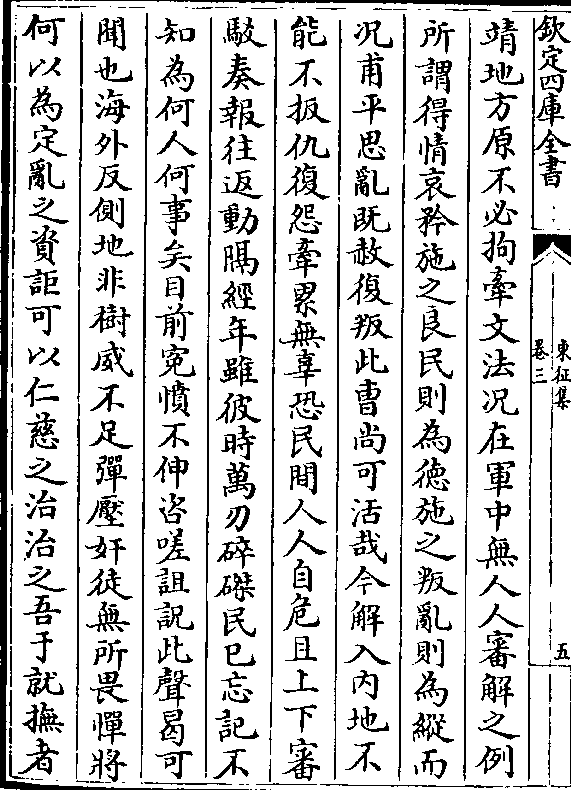 欽定四庫全書
東征集
卷三
五
靖地方原不必拘牽文法况在軍中無人人審解之例
所謂得情哀矜施之良民則為徳施之叛亂則為縱而
况甫平思亂既赦復叛此曺尚可活哉今解入内地不
能不扳仇復怨牽累無辜恐民間人人自危且上下審
駁奏報往返動隔經年雖彼時萬刃碎磔民已忘記不
知為何人何事矣目前寃憤不伸咨嗟詛説此聲曷可
聞也海外反側地非樹威不足彈壓奸徒無所畏憚將
何以為定亂之資詎可以仁慈之治治之吾于就撫者